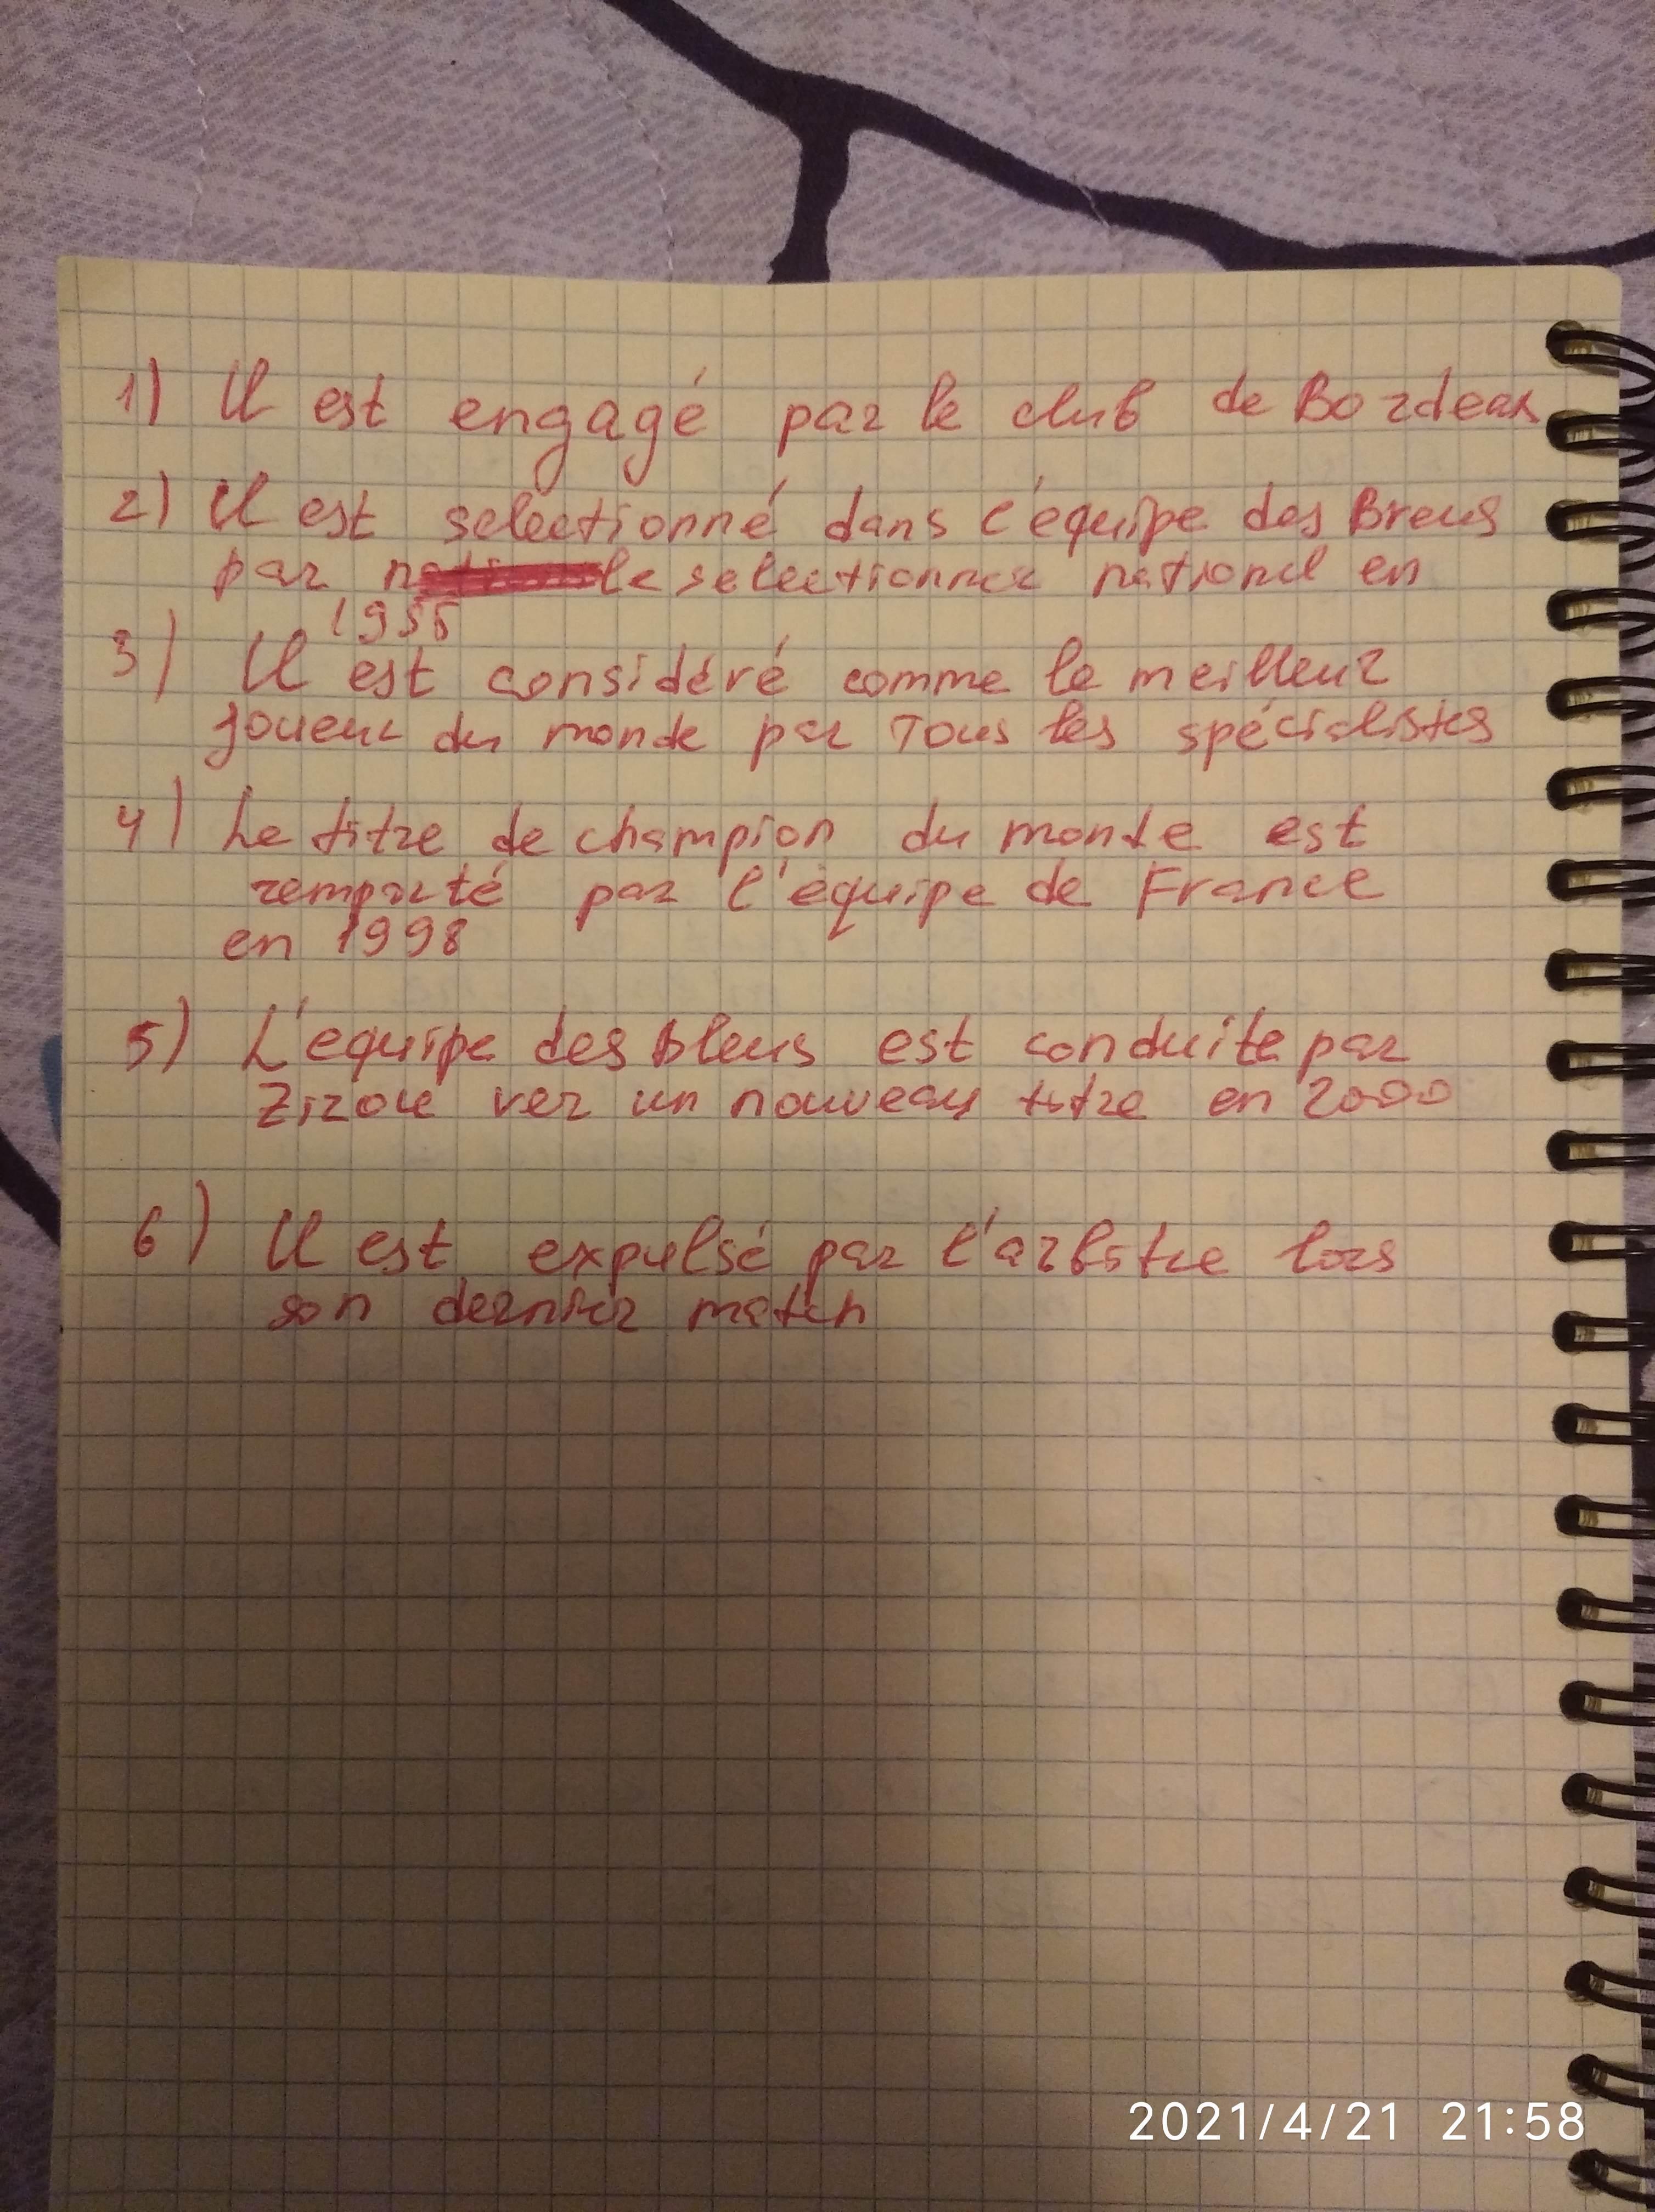 1) Il est engagé par le club de Bordeax
2) Il est selectionné dans l'équipe des Breus
par le selectionner national en
1955
3) Il est considéré comme le meilleur
joueur du monde par Tous les spécialistes
4) Le titre de champion du monde est
remporté par l'équipe de France
en 1998
5) L'équipe des Bleus est conduite par
Zizou ver un nouveau titre en 2000
6) Il est expulsé par l'arbitre lors
son dernier match
2021/4/21 21:58